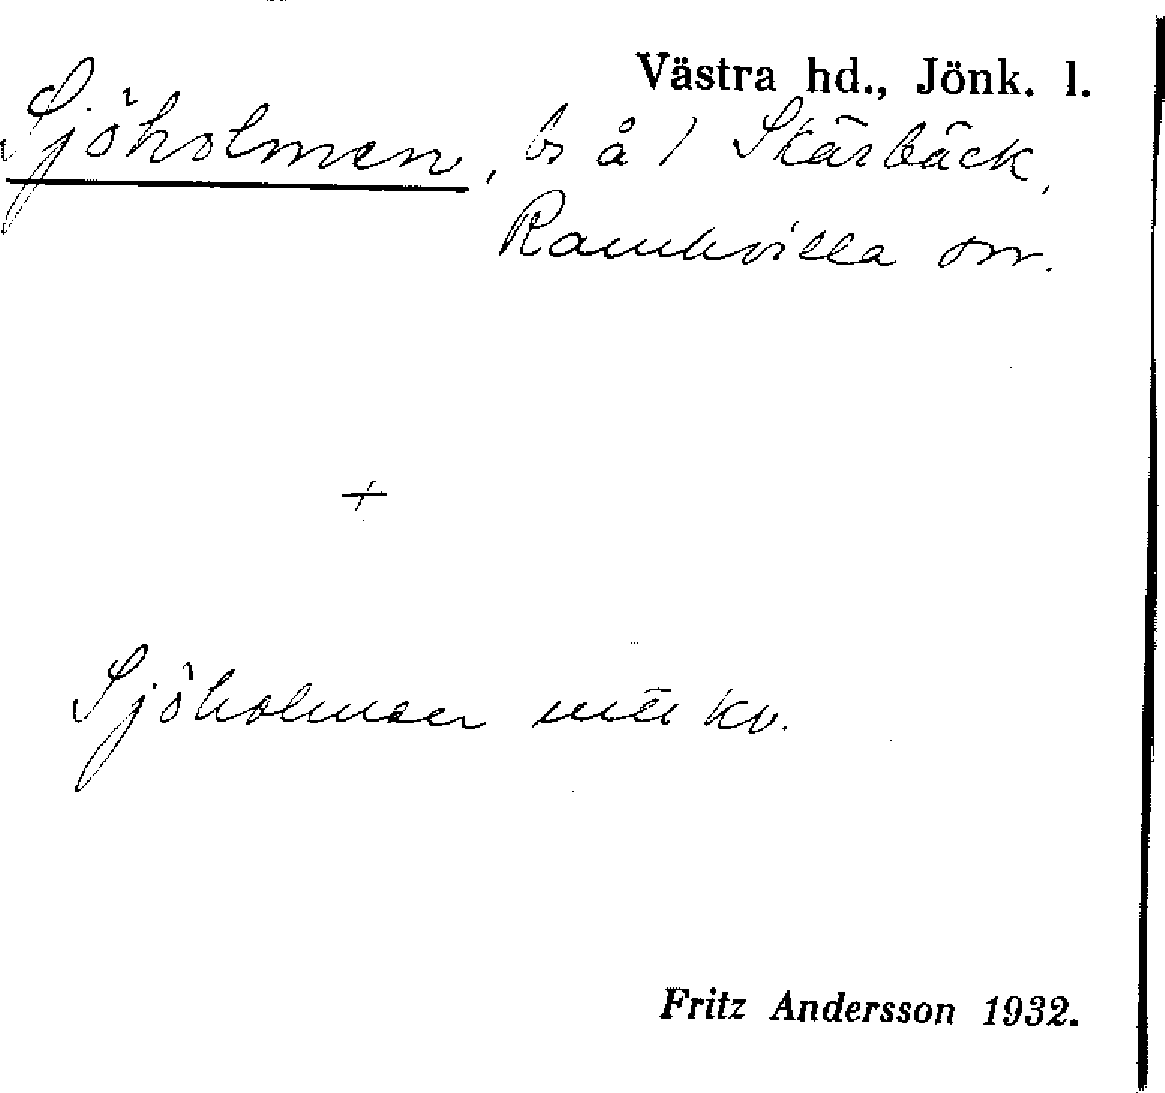 Västra hd., Jönk. l.
Sjöholmen, bs å 1 Skärbäck,
Ramkvilla sn.
+
Sjöholmen kv.
Fritz Andersson 1932.